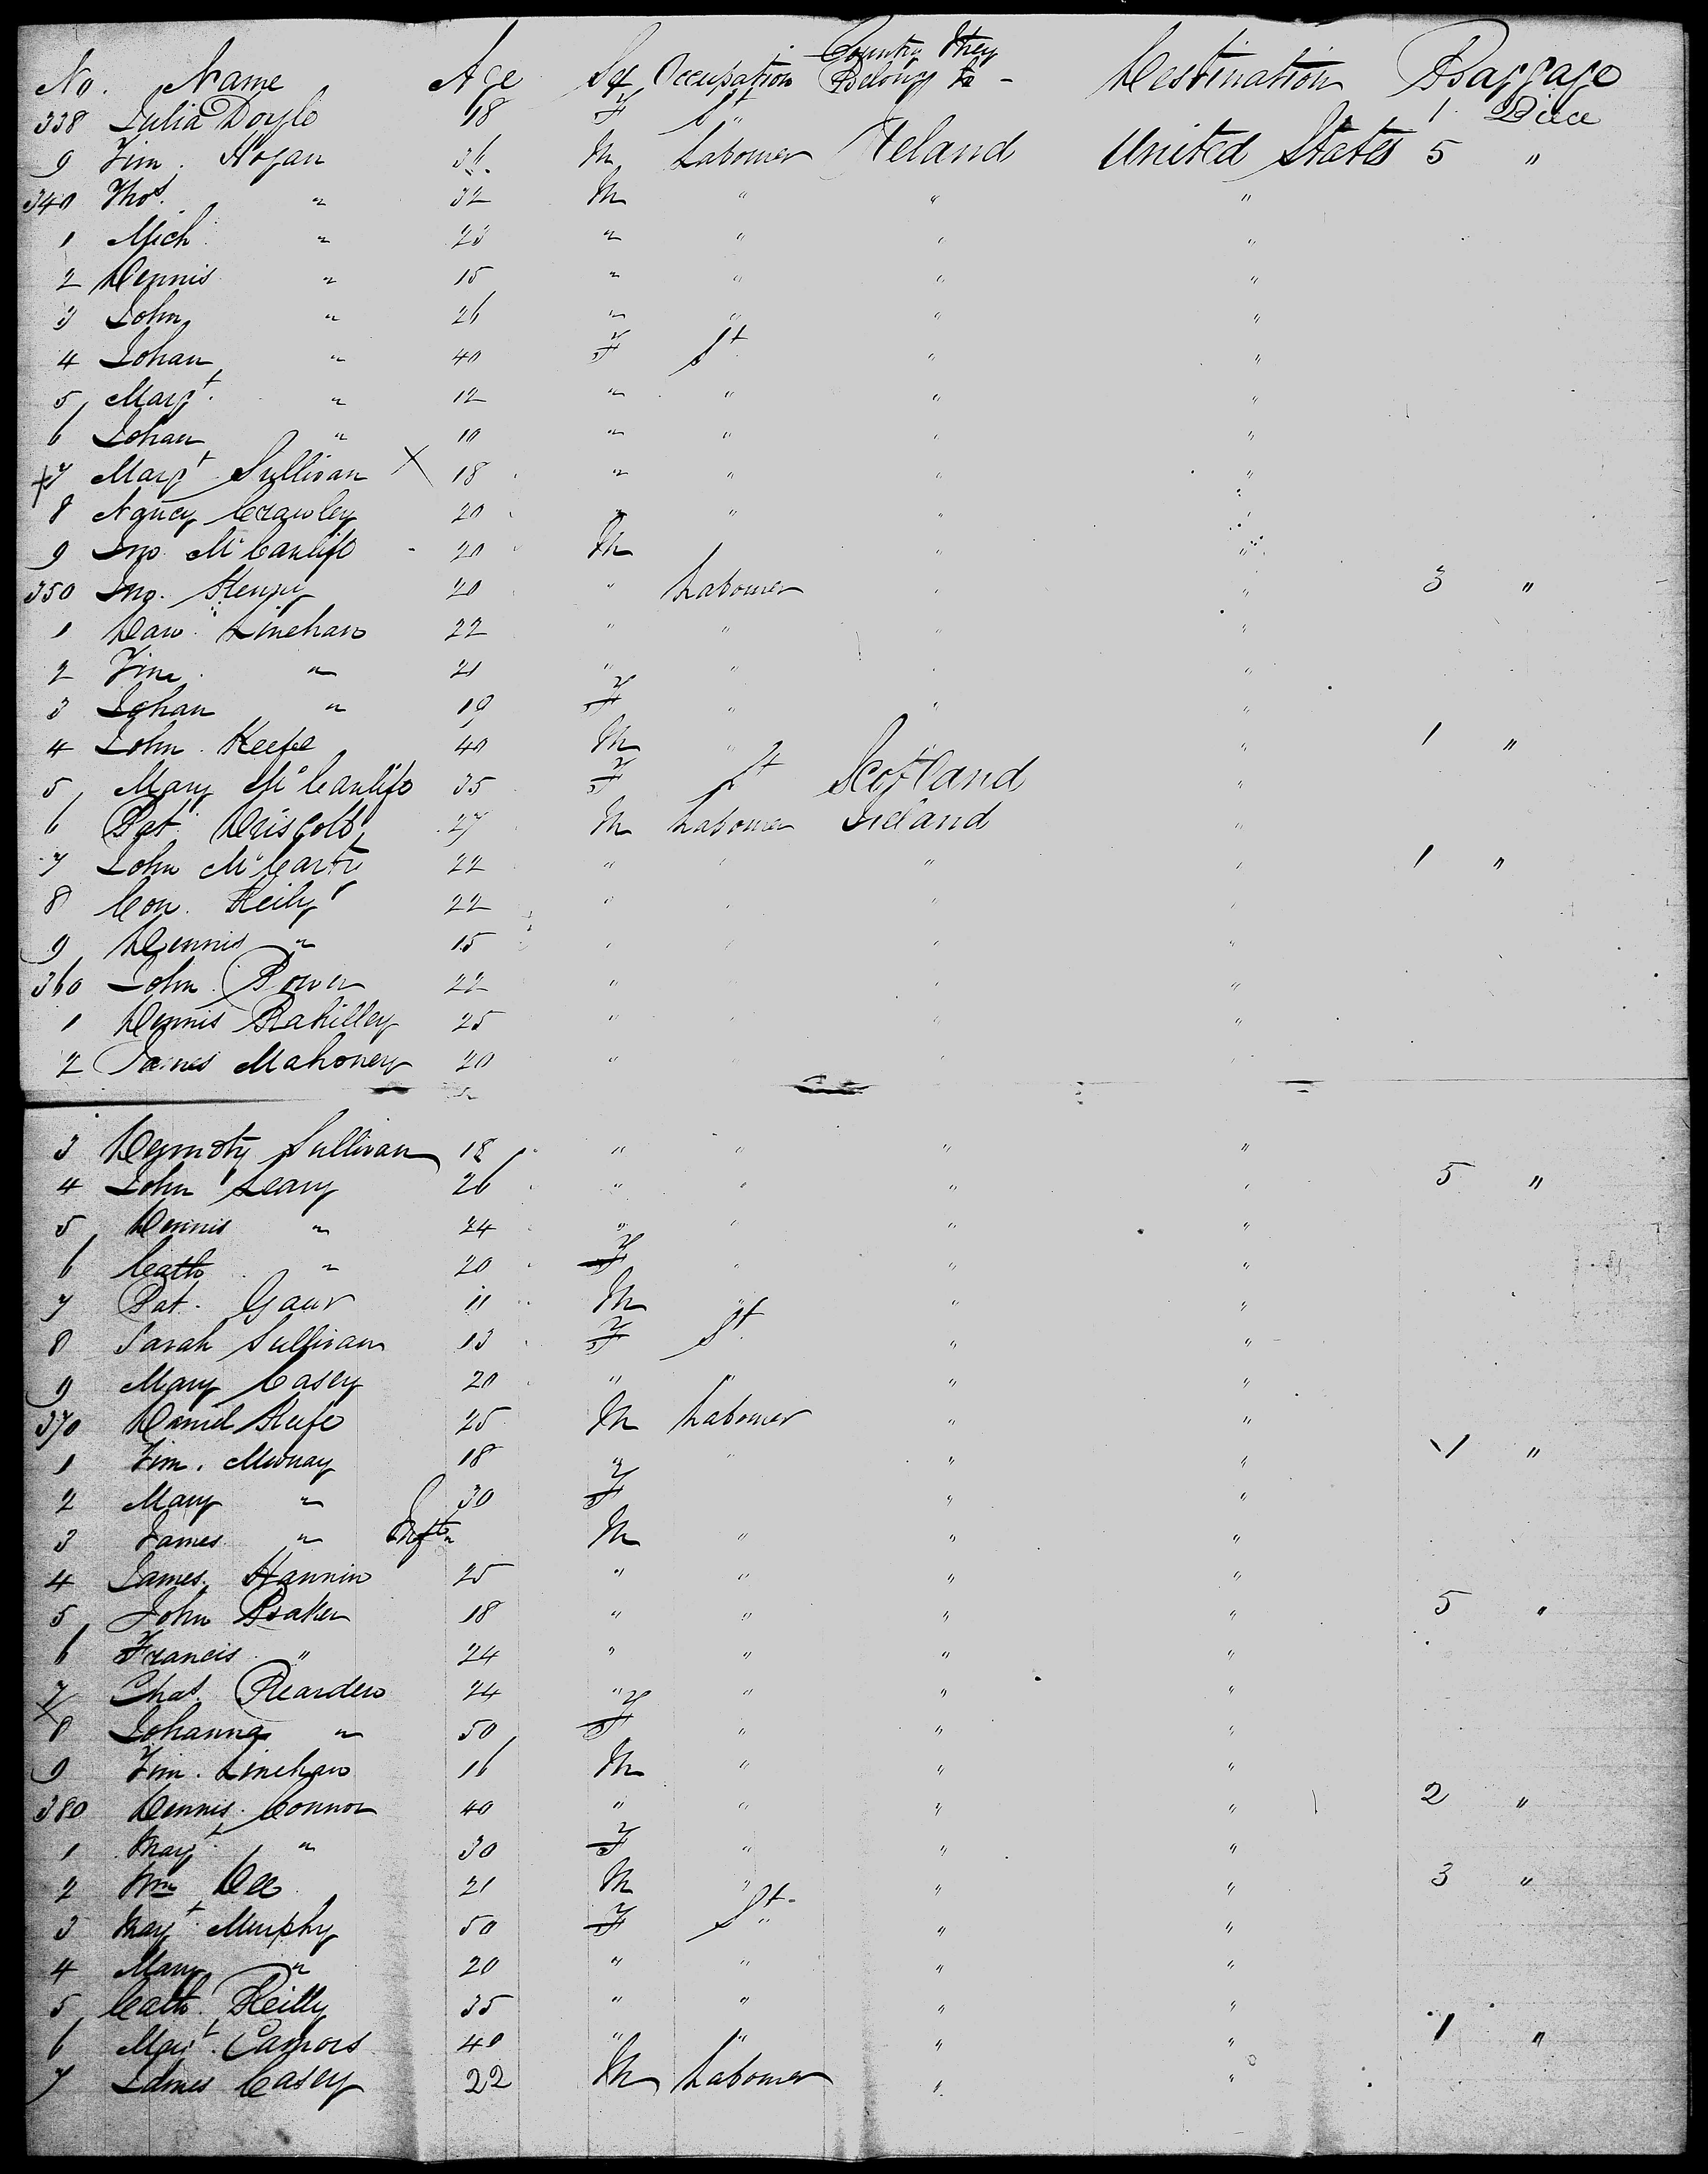 No. Name Age Sex Occupation Country they Belong to - Destination Baggage
338 Julia Doyle 18 F St 1 Piece
9 Tim. Hogan 36 M Labourer Ireland United States 5 "
340 Thos. " 32 M " " "
1 Mich " 23 " " " "
2 Dennis " 15 " " " "
3 John " 26 " " " "
4 Johan " 40 F St " "
5 Margt. " 12 " " " "
6 Johan " 10 " " " "
7 Margt Sullivan X 18 " " " "
8 Nancy Crawley 20 " " " "
9 Jno McCanlife 20 M " "
350 Jno. Kenny 20 " Labourer " " 3 "
1 Dan Linehan 22 " " " "
2 Tim. " 21 " " " "
3 Johan " 19 F " " "
4 John Keefe 40 M " " " 1 "
5 Mary McCanlife 35 F St Scotland "
6 Pat Driscoll 27 M Labourer Ireland "
7 John McCarty 22 " " " " 1 "
8 Con. Reily 22 " " " "
9 Dennis " 15 " " " "
360 John Power 22 " " "
1 Dennis Rahilley 25 " " " "
2 James Mahoney 20 " " " "
3 Sullivan 18 " " " "
4 John Leary 26 " " " " 5 "
5 Dennis " 24 " " " "
6 Cath " 20 F " " "
7 Pat. Gaur 11 M " " "
8 Sarah Sullivan 13 F St " "
9 Mary Casey 20 " " " "
370 Daniel Keefe 25 M Labourer " "
1 Tim. Murnay 18 " " " " 1 "
2 Mary " 30 F " "
3 James " Inft M " " "
4 James Hannin 25 " " " "
5 John Baker 18 " " " " 5 "
6 Francis " 24 " " " "
7 Chas. Rearden 24 " " " "
8 Johanna " 50 F " " "
9 Tim. Linehan 16 M " " "
380 Dennis Connor 40 " " " " 2 "
1 Margt " 30 F " " "
2 Wm Dee 21 M " " " 3 "
3 Margt Murphy 50 F St " "
4 Mary " 20 " " " "
5 Cath. Reilly 35 " " " "
6 Margt. Connors 40 " " " " 1 "
7 James Casey 22 M Labourer " "